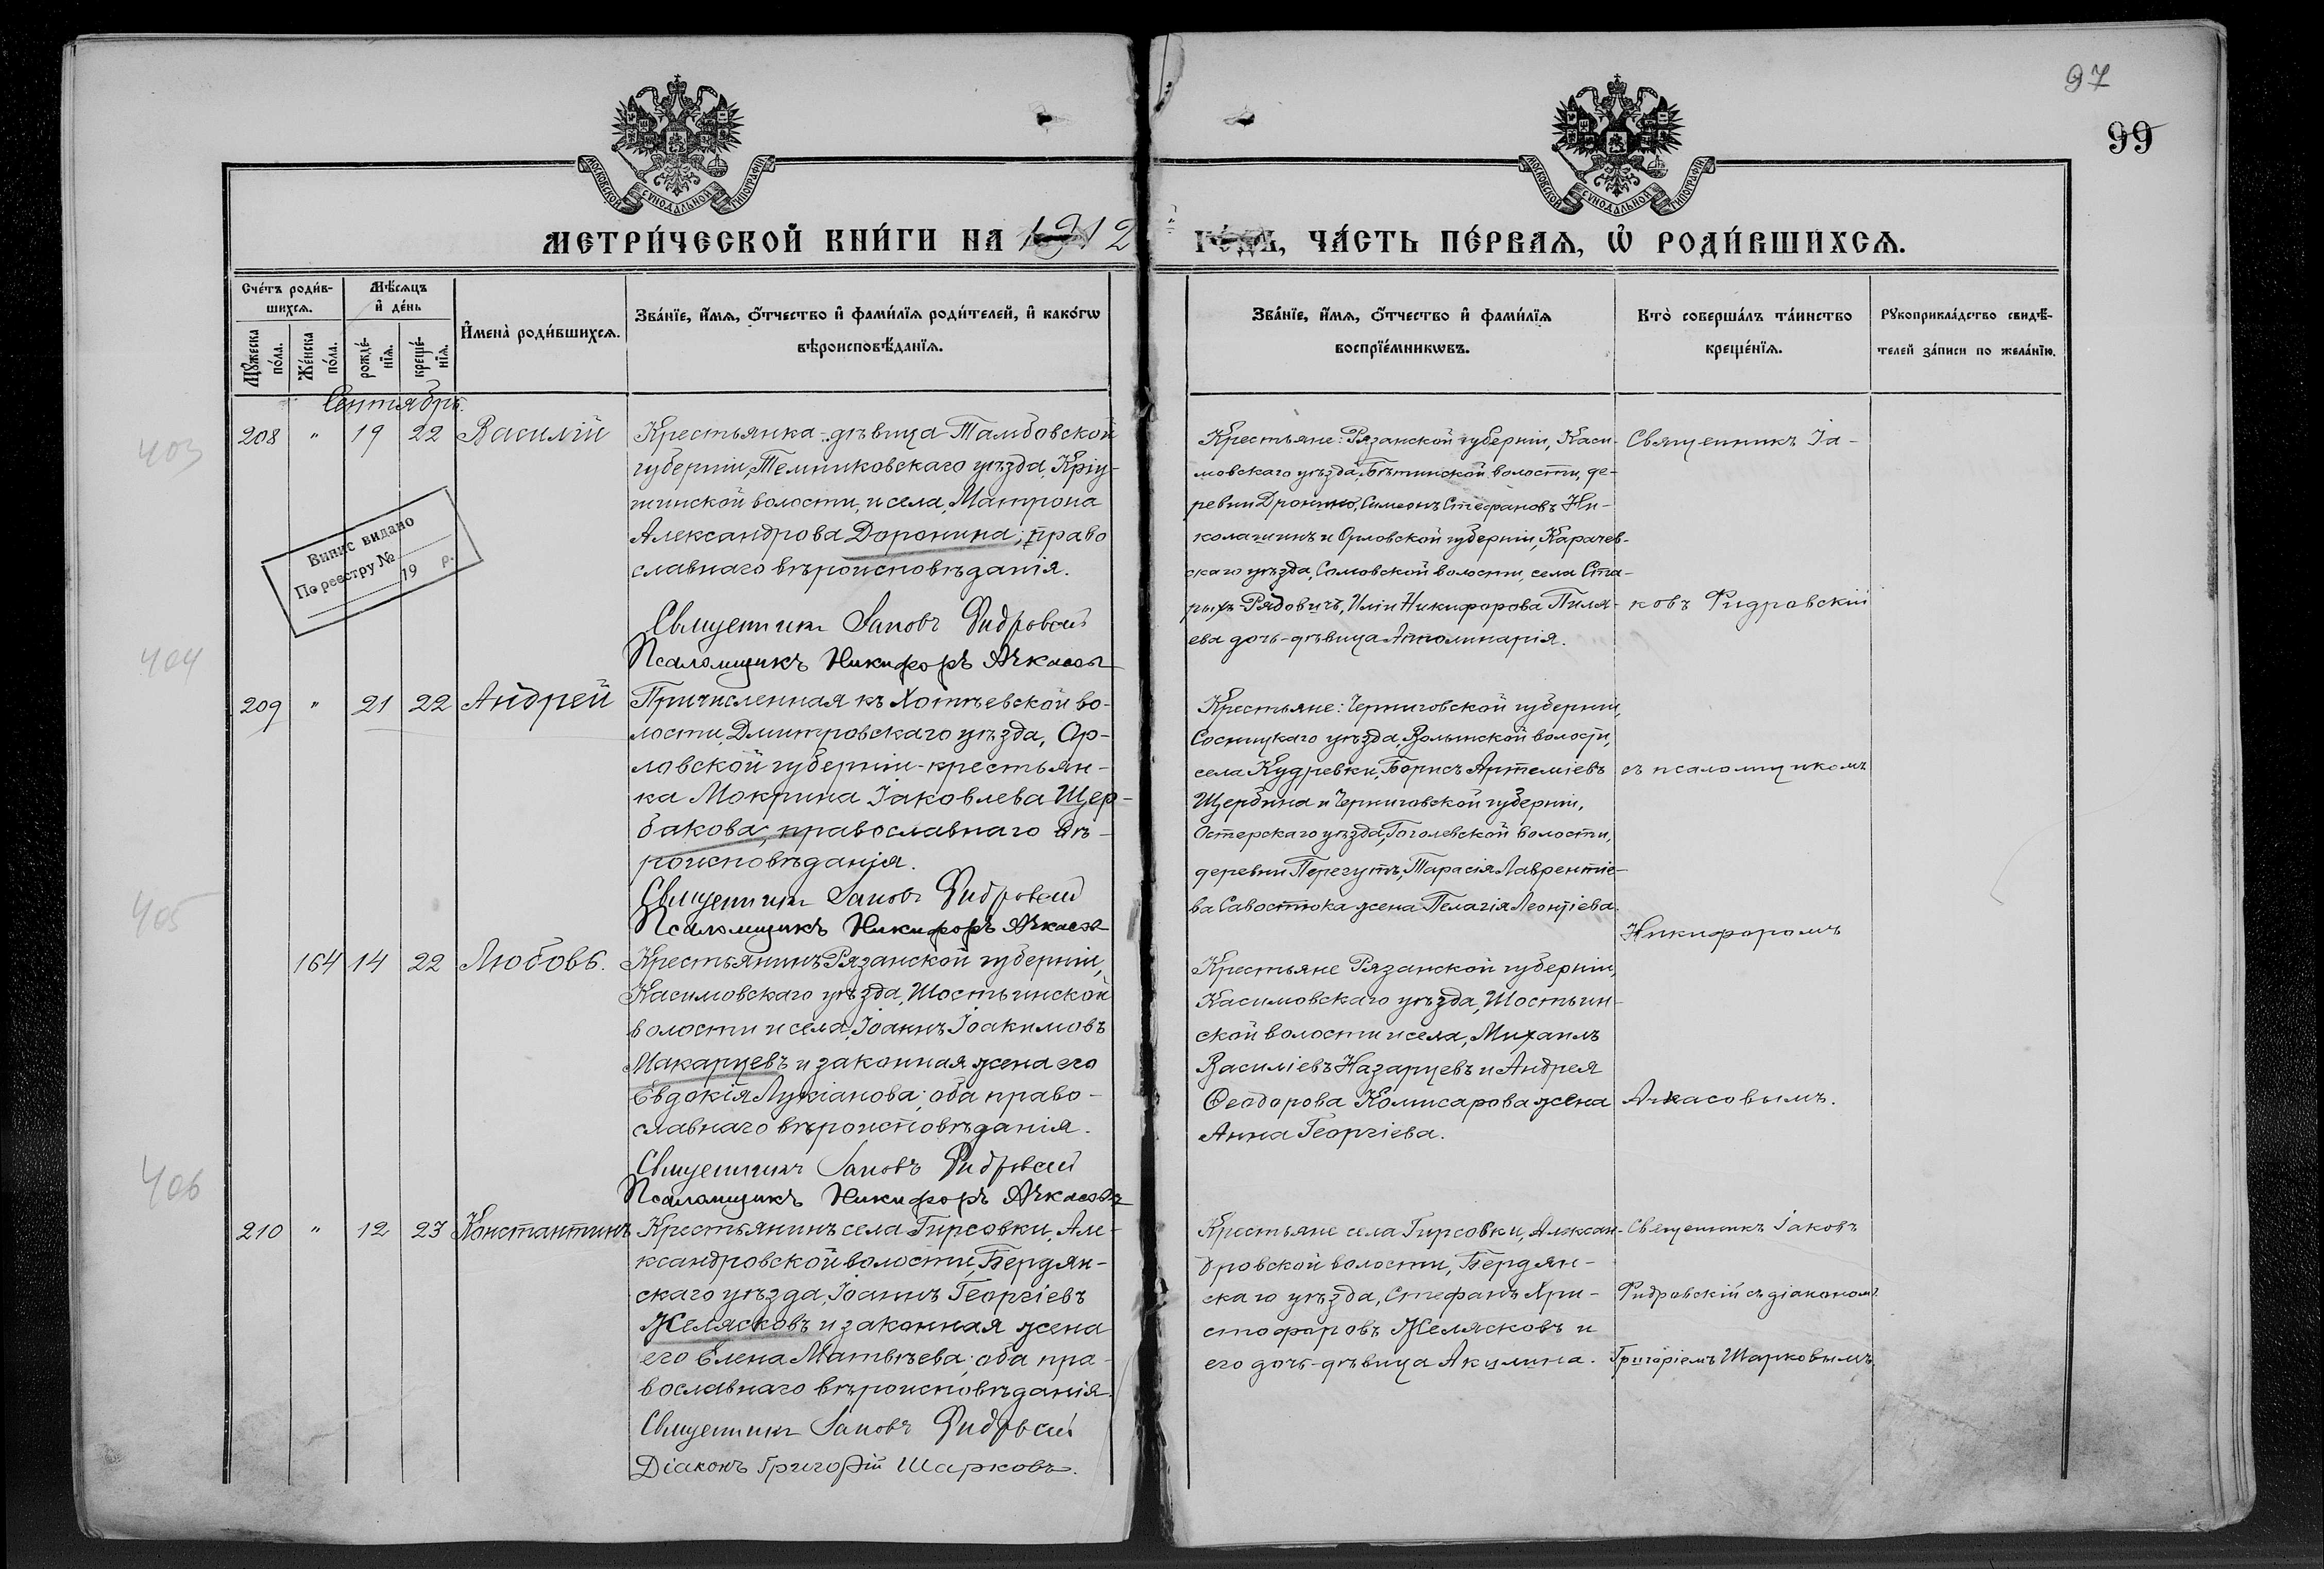 97
99
МОСКОВСКОЙ СѴНОДАЛЬНОЙ ТИПОГРАФІИ
МОСКОВСКОЙ СѴНОДАЛЬНОЙ ТИПОГРАФІИ
МЕТРИ́ЧЕСКОЙ КНИ́ГИ НА 1912
ГО́ДЪ, ЧА́СТЬ ПЕ́РВАѦ, Ѡ҆ РОДИ́ВШИХСѦ.
Сче́тъ роди́в-
шихсѧ.
Мꙋ́жеска
по́ла.
Же́нска
по́ла.
Мѣ́сѧцъ
и҆ де́нь
рожде́-
нїѧ.
креще́-
нїѧ.
И҆мена̀ роди́вшихсѧ.
Зва́нїе, и҆́мѧ, ѻ҆́тчество и҆ фами́лїѧ роди́телей, и҆ како́гѡ
вѣроисповѣ́данїѧ.
Зва́нїе, и҆́мѧ, ѻ҆́тчество и҆ фами́лїѧ
воспрїе́мникѡвъ.
Кто̀ соверша́лъ та́инство
креще́нїѧ.
Рꙋкоприкла́дство свидѣ́-
телей за́писи по жела́нїю.
Сентябрь.
403
208 " 19 22 Василій
Крестьянка-дѣвица Тамбовской
губерніи, Темниковскаго уѣзда, Кріу-
шинской волости, и села, Матрона
Александрова Доронина; право
славнаго вѣроисповѣданія.
Священникъ Іаковъ Фидровскій
Псаломщикъ Никифоръ Ачкасовъ
Випис видано
По реєстру №
19 р.
Крестьяне: Рязанской губерніи, Каси-
мовскаго уѣзда, Бѣтинской волости, де-
ревни Дронино, Симеонъ Стефановъ Ни-
колашинъ и Орловской губерніи, Карачев-
скаго уѣзда, Сомовской волости, села Ста-
рыхъ-Рядовичъ, Иліи Никифорова Пиля-
ева дочь-дѣвица Апполинарія.
Священникъ Іа-
ковъ Фидровскій
404
209 " 21 22 Андрей
Причисленная къ Хотѣевской во-
лости, Дмитровскаго уѣзда, Ор-
ловской губерніи-крестьян-
ка Мокрина Іаковлева Щер-
бакова, православнаго вѣ-
роисповѣданія.
Священникъ Іаковъ Фидровскій
Псаломщикъ Никифоръ Ачкасовъ
Крестьяне: Черниговской губерніи,
Сосницкаго уѣзда, Волынской волости,
села Кудревки, Борисъ Артеміевъ
Щербина и Черниговской губерніи,
Остерскаго уѣзда, Гоголевской волости,
деревни Перегутъ, Тарасія Лаврентіе-
ва Савостюка жена Пелагія Леонтіева.
съ псаломщикомъ
Никифоромъ
405
164 14 22 Любовь.
Крестьянинъ Рязанской губерніи,
Касимовскаго уѣзда, Шостьинской
волости и села, Іоаннъ Іоакимовъ
Макарцевъ и законная жена его
Евдокія Лукіанова; оба право-
славнаго вѣроисповѣданія.
Священникъ Іаковъ Фидровскій
Псаломщикъ Никифоръ Ачкасовъ
Крестьяне Рязанской губерніи,
Касимовскаго уѣзда, Шостьин-
ской волости и села, Михаилъ
Василіевъ Назарцевъ и Андрея
Ѳеодорова Комисарова жена
Анна Георгіева.
Ачкасовымъ.
406
210 " 12 23 Константинъ
Крестьянинъ села Гирсовки, Але-
ксандровской волости, Бердян-
скаго уѣзда, Іоаннъ Георгіевъ
Желясковъ и законная жена
его Елена Матвѣева; оба пра-
вославнаго вѣроисповѣданія.
Священникъ Іаковъ Фидровскій
Діаконъ Григорій Шарковъ.
Крестьяне села Гирсовки, Алексан-
дровской волости, Бердян-
скаго уѣзда, Стефанъ Хри-
стофоровъ Желясковъ и
его дочь-дѣвица Акулина.
Священникъ Іаковъ
Фидровскій съ діакономъ
Григоріемъ Шарковымъ.